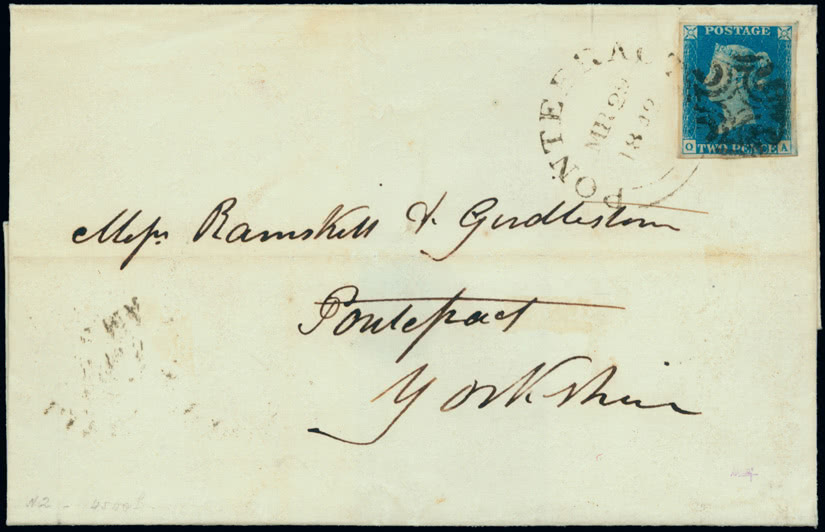 POSTAGE
O TWO PENCE A
PONTEFRACT
MR 29
Messrs Ramskill & Girdlestone
Pontefract
Yorkshire